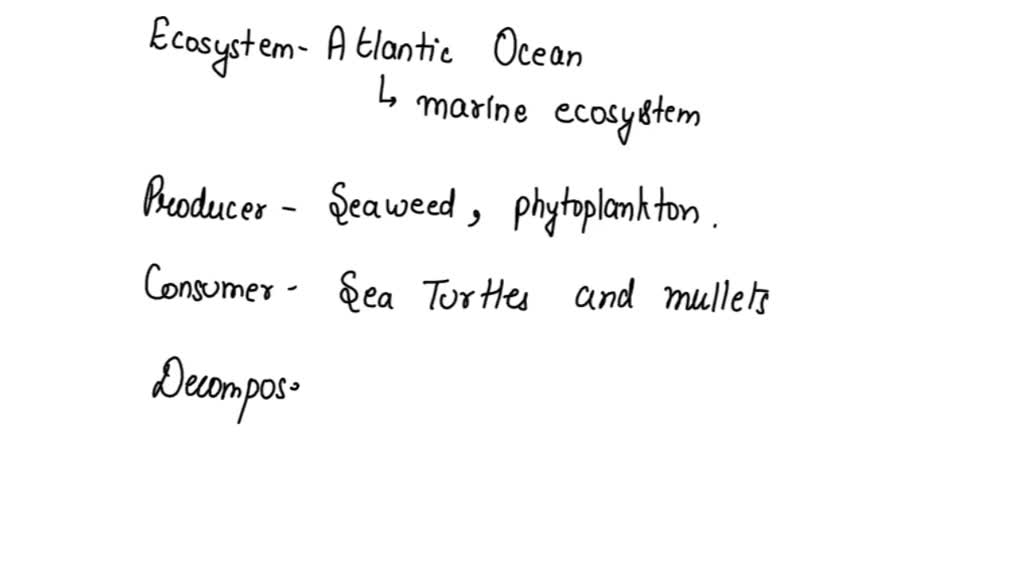 Ecosystem- Atlantic Ocean
↳ marine ecosystem
Producer - Seaweed, phytoplankton.
Consumer - Sea Turtles and mullets
Decompos